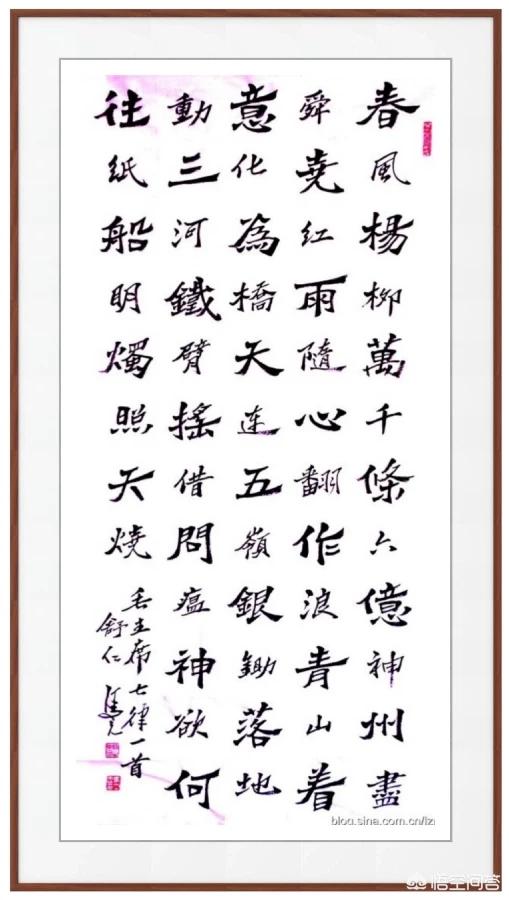 春風楊柳萬千條六億神州盡
舜堯紅雨隨心翻作浪青山着
意化為橋天连五嶺銀鋤落地
動三河鐵臂搖借問瘟神欲何
往紙船明燭照天燒
毛主席七律一首
舒仁
blog.sina.com.cn/lzi
悟空问答